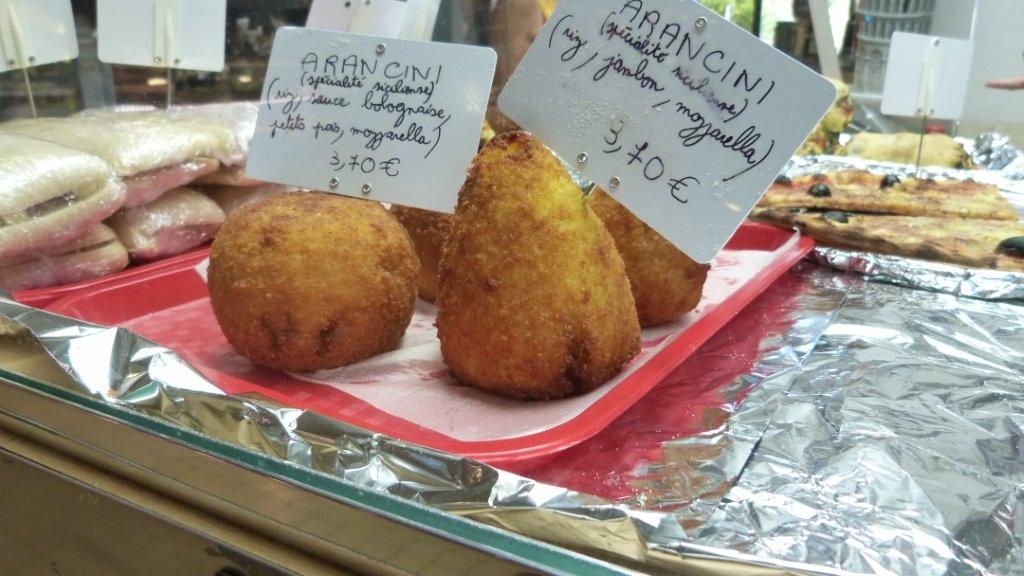 ARANCINI
(spécialité sicilienne)
(riz, sauce bolognaise,
petits pois, mozzarella)
3,70 €
ARANCINI
(spécialité sicilienne)
(riz, jambon, mozzarella)
3,70 €